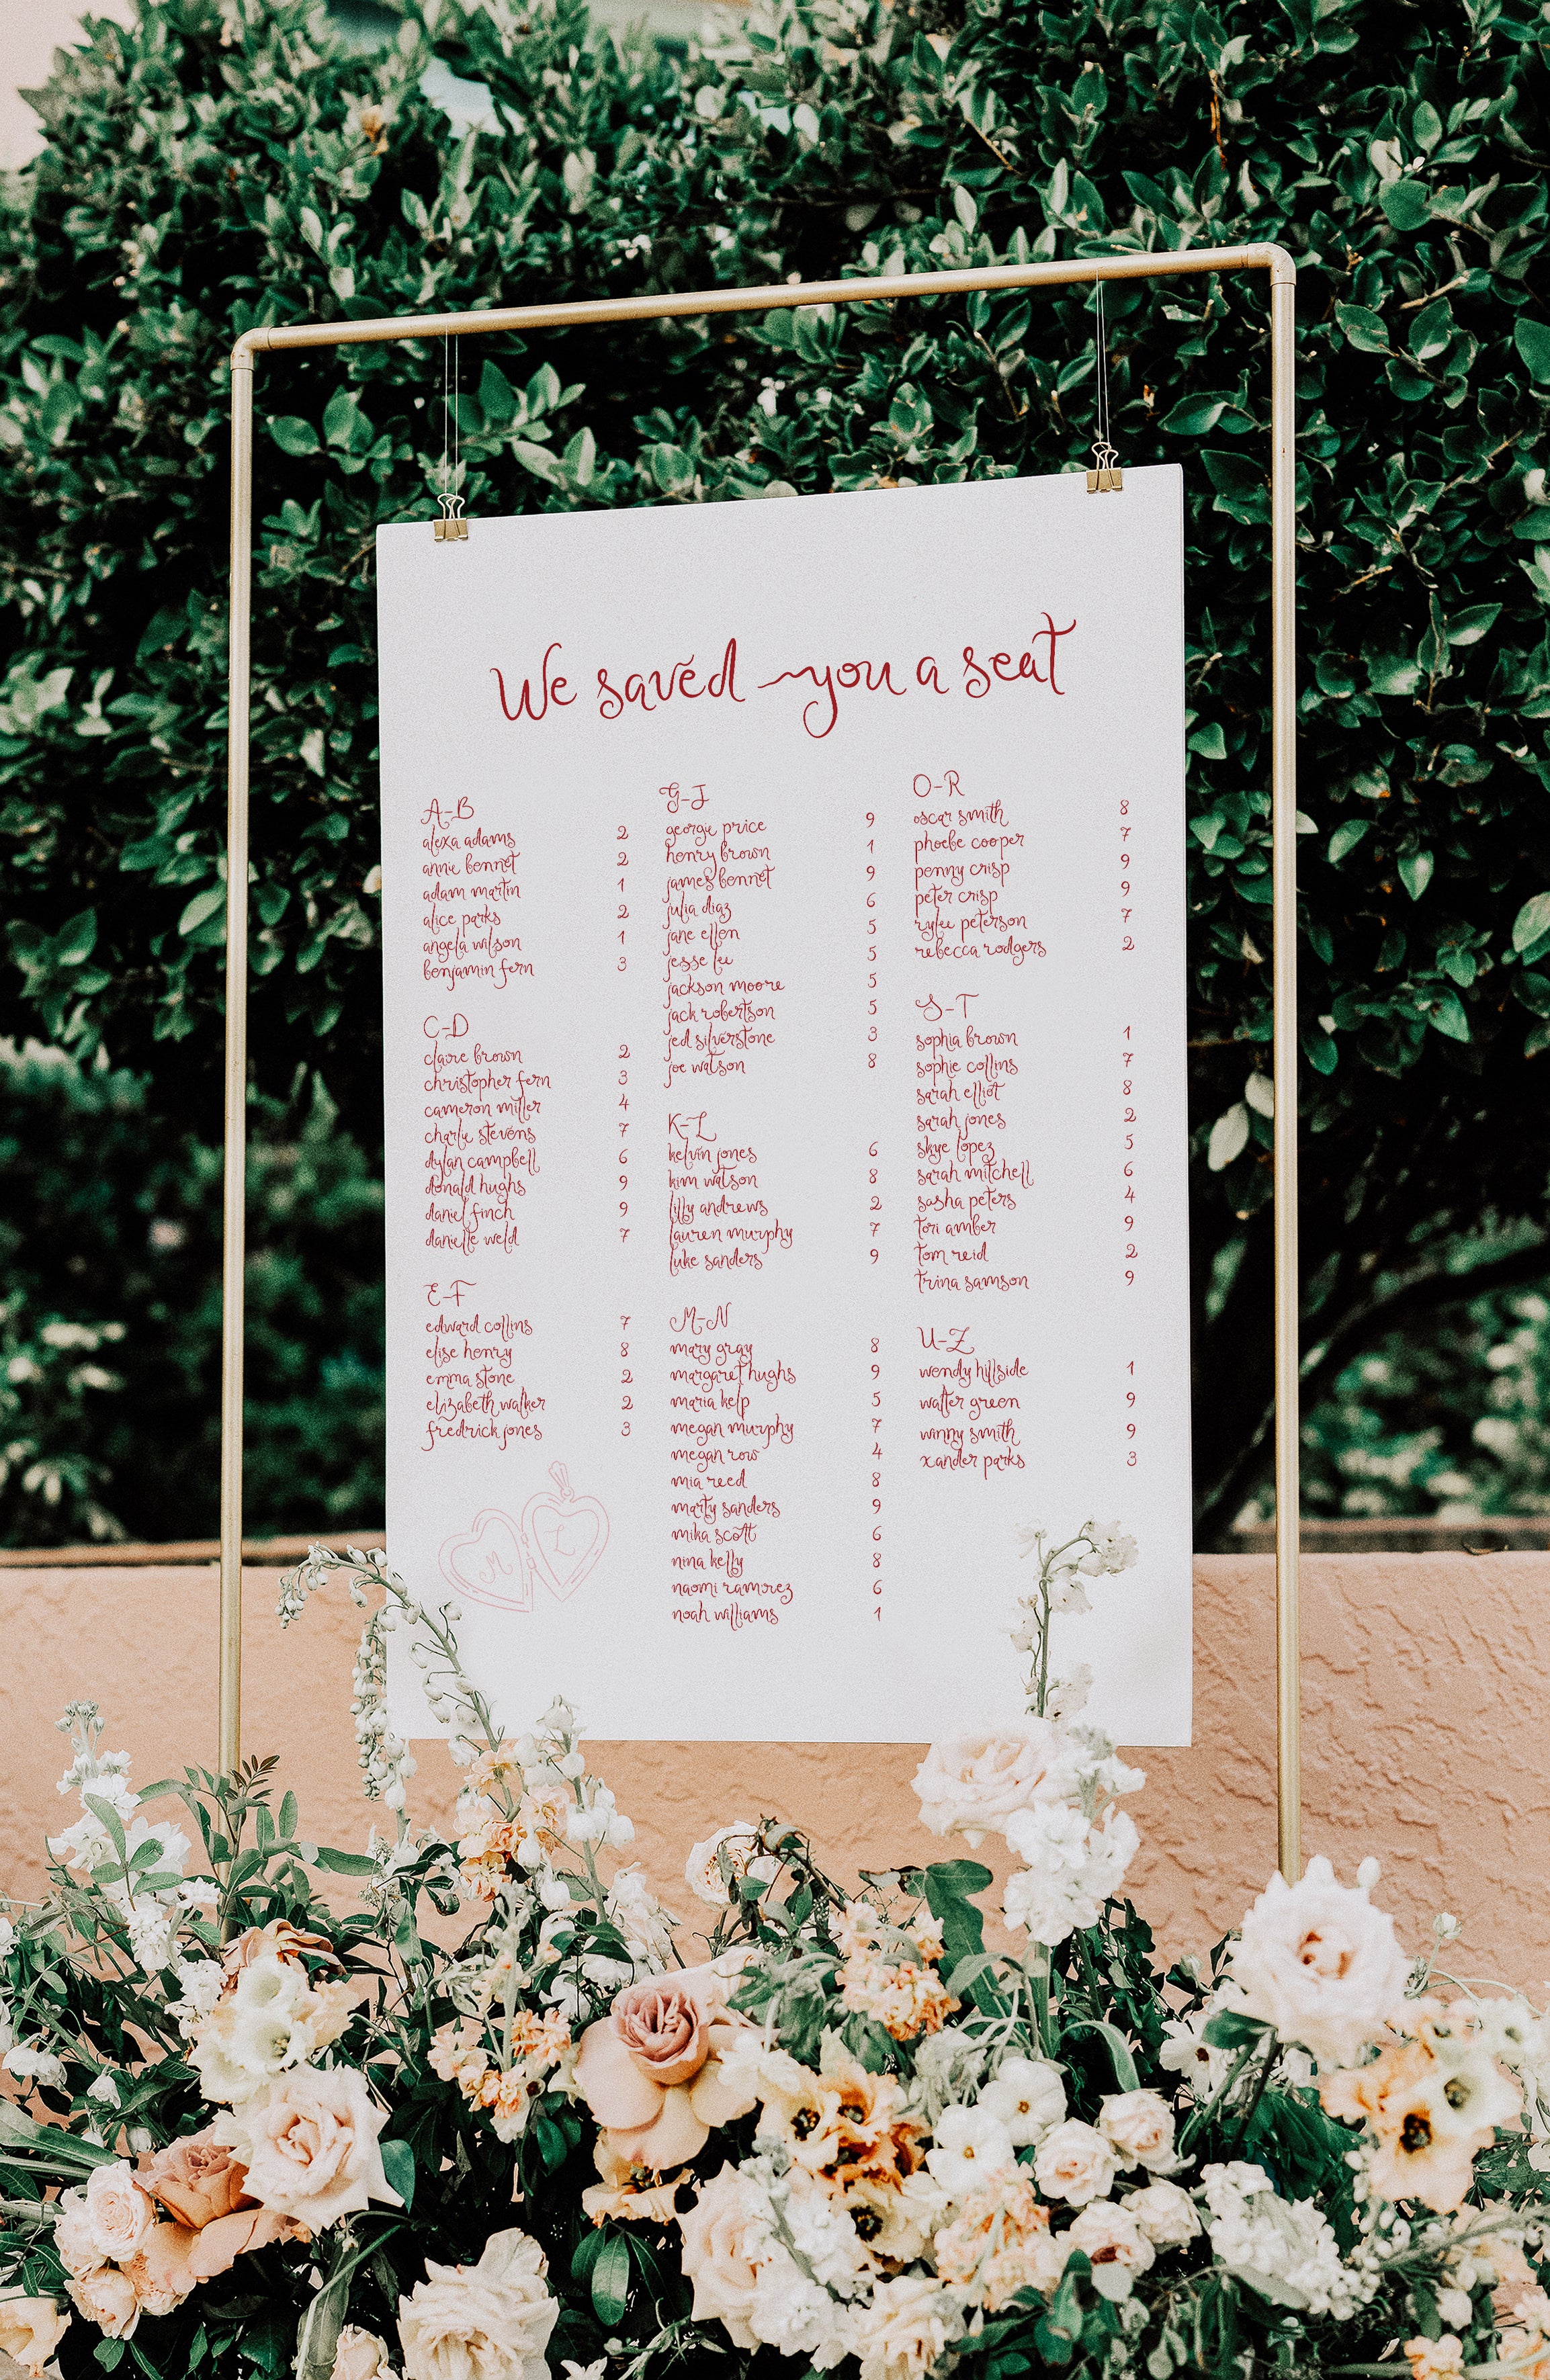 We saved you a seat
A-B
alexa adams 2
annie bennet 2
adam martin 1
alice parks 2
angela wilson 1
benjamin fern 3
C-D
claire brown 2
christopher fern 3
cameron miller 4
charlie stevens 7
dylan campbell 6
donald hughs 9
daniel finch 9
danielle weld 7
E-F
edward collins 7
elise henry 8
emma stone 2
elizabeth walker 2
fredrick jones 3
M L
G-J
georgie price 9
henry brown 1
james bennet 9
julia diaz 6
jane ellen 5
jesse lee 5
jackson moore 5
jack robertson 5
jed silverstone 3
joe watson 8
K-L
kelvin jones 6
kim watson 8
lilly andrews 2
lauren murphy 7
luke sanders 9
M-N
mary gray 8
margaret hughs 9
maria kelp 5
megan murphy 7
megan row 4
mia reed 8
marty sanders 9
mika scott 6
nina kelly 8
naomi ramirez 6
noah williams 1
O-R
oscar smith 8
phoebe cooper 7
penny crisp 9
peter crisp 9
rylee peterson 7
rebecca rodgers 2
S-T
sophia brown 1
sophie collins 7
sarah elliot 8
sarah jones 2
skye lopez 5
sarah mitchell 6
sasha peters 4
tori amber 9
tom reid 2
trina samson 9
U-Z
wendy hillside 1
walter green 9
winny smith 9
xander parks 3